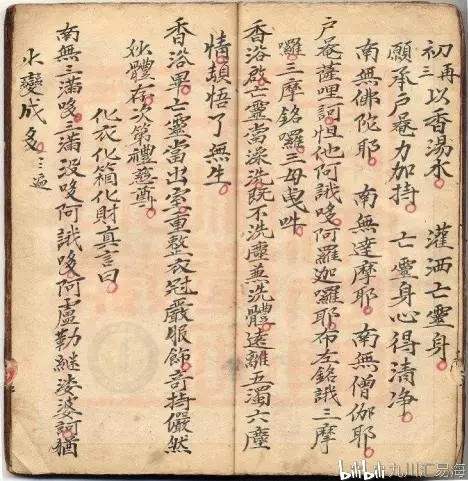 初再三以香湯水 灌洒亡靈身
願承户菴力加持 亡靈身心得清净
南無佛陀耶 南無達摩耶 南無僧伽耶
户菴薩哩訶怛他何誐哆阿羅加羅耶布左銘誐三摩
囉三摩銘囉三毋曳吽
香浴啟亡靈當深洗既不洗塵兼洗體遠離五濁六塵
情頓悟了無生
香浴畢亡靈當出室重整衣冠嚴服飾奇持儼然
妙體存次第禮慈尊
化衣化箱化財真言曰
南無三滿哆三滿没哆阿誐哆阿盧勒継娑婆訶猶
水變成多 三遍
bilibili 九川汇易海